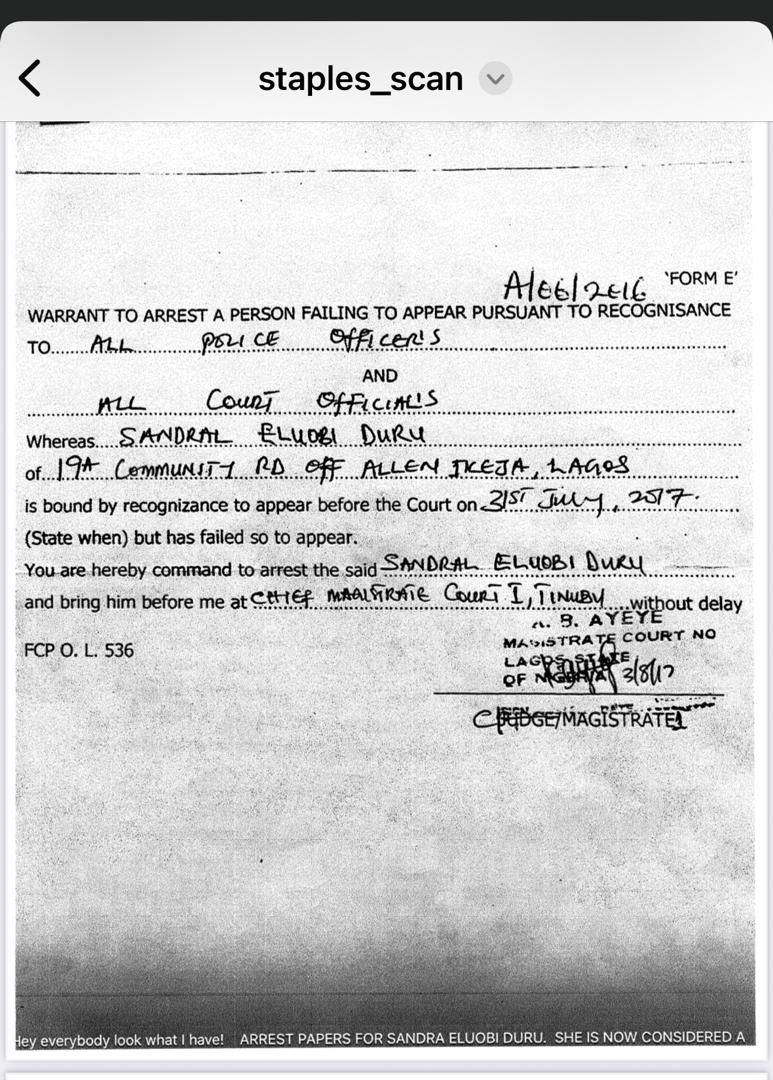 staples_scan
A/06/2016 'FORM E'
WARRANT TO ARREST A PERSON FAILING TO APPEAR PURSUANT TO RECOGNISANCE
TO.....ALL POLICE OFFICER'S
AND
ALL COURT OFFICIAL'S
Whereas...SANDRAL ELUOBI DURU
of...19A COMMUNITY RD OFF ALLEN IKEJA, LAGOS
is bound by recognizance to appear before the Court on 31ST July, 2017.
(State when) but has failed so to appear.
You are hereby command to arrest the said SANDRAL ELUOBI DURU
and bring him before me at CHIEF MAGISTRATE COURT I, TINUBU....without delay
B. AYEYE
MAGISTRATE COURT NO
FCP O. L. 536
LAGOS STATE
OF NIGERIA 3/8/17
JUDGE/MAGISTRATE
Hey everybody look what I have! ARREST PAPERS FOR SANDRA ELUOBI DURU. SHE IS NOW CONSIDERED A